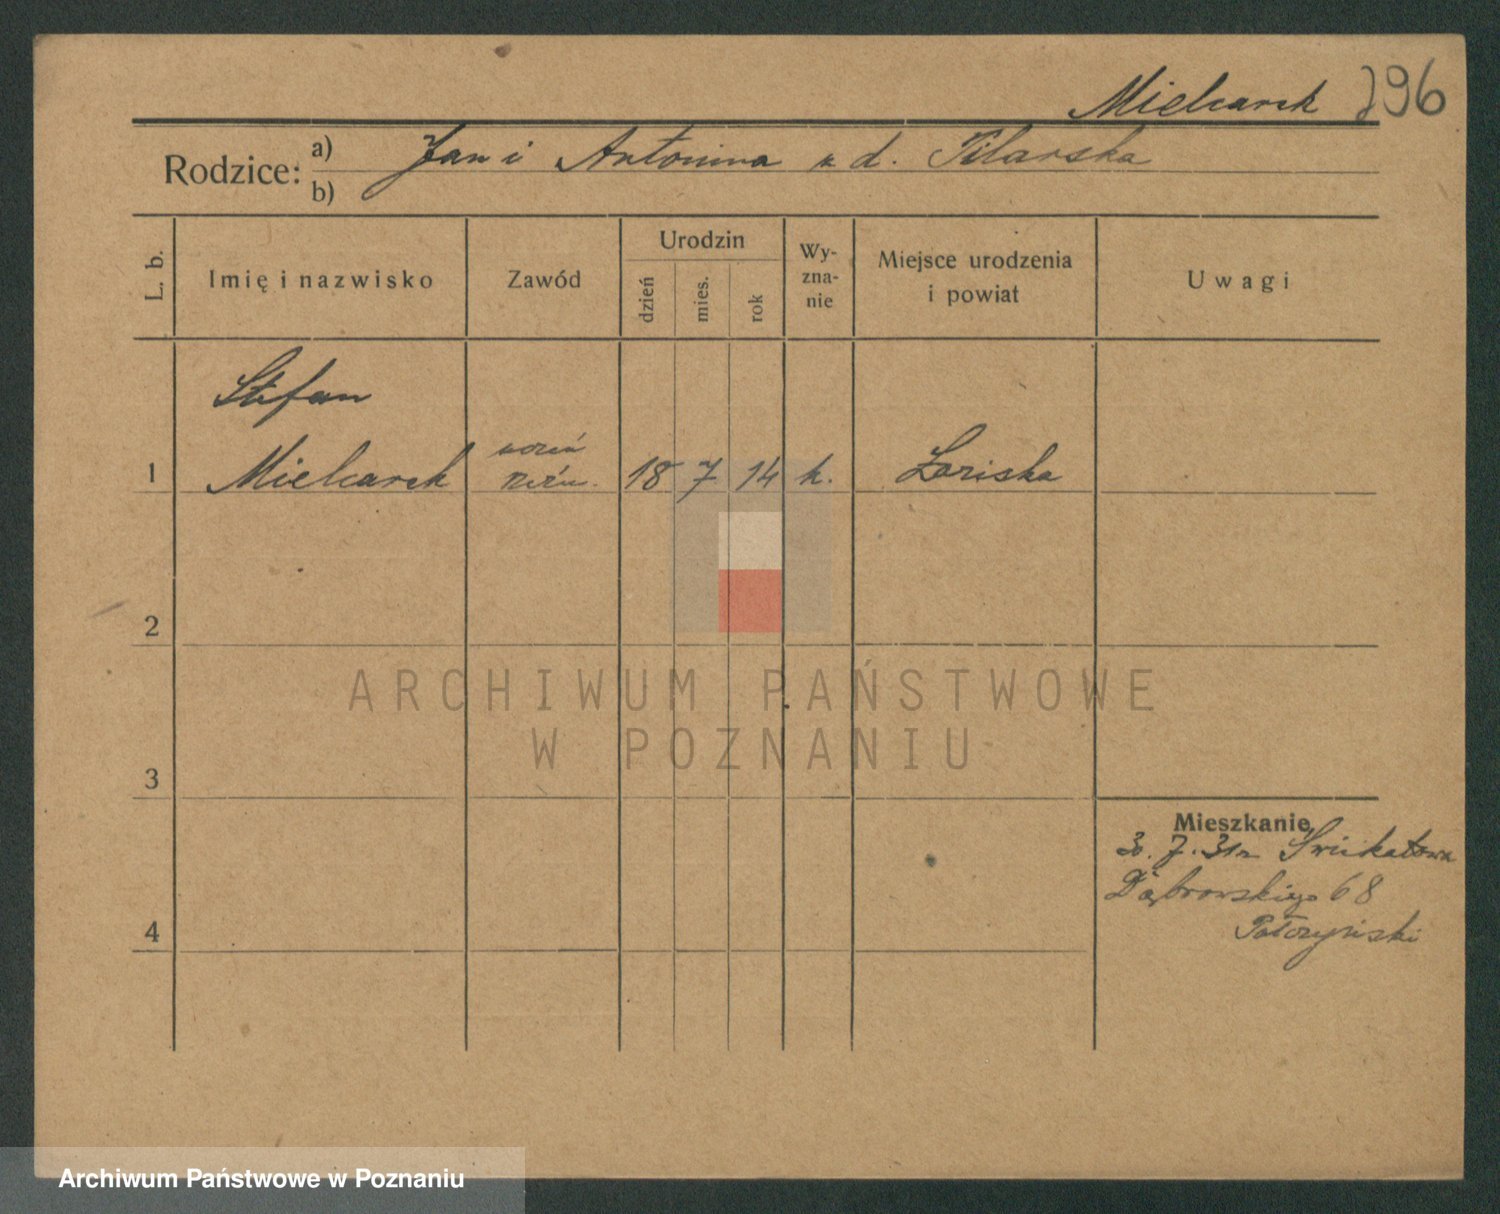 Mielcarek 296
Rodzice: a) Jan i Antonina u d. Pilarska
b)
L. b. Imię i nazwisko Zawód Urodzin dzień mies. rok Wy-zna-nie Miejsce urodzenia i powiat Uwagi
Stefan
1 Mielcarek uczeń rzeźn. 18 7 14 k. Zoriska
2
ARCHIWUM PAŃSTWOWE
W POZNANIU
3
Mieszkanie
30. 7. 31 z
Dąbrowskiego 68
4
Archiwum Państwowe w Poznaniu